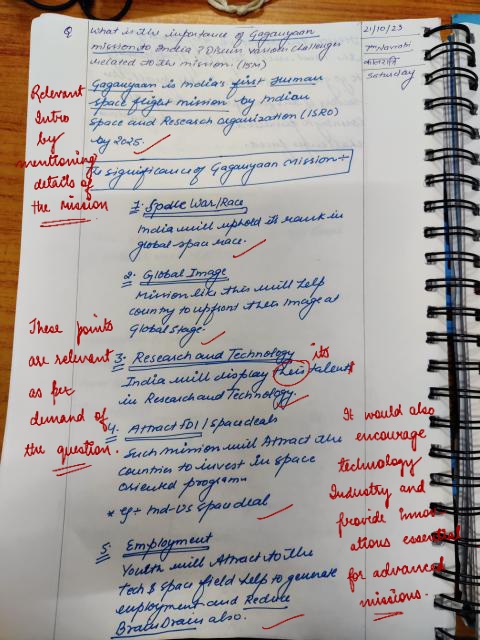 Q What is the importance of Gaganyaan
mission to India? Discuss various challenges
related to the mission. (15M)
21/10/23
Saturday
Gaganyaan is India's first Human
space flight mission by Indian
Space and Research organization (ISRO)
by 2025.
Relevant
Intro
by
mentioning
details of
the mission
significance of Gaganyaan Mission
1. Space War/Race
India will uphold its rank in
global space race.
2. Global Image
Mission like this will help
country to upfront their Image at
Global stage.
These points
are relevant
as per
demand of
the question.
3. Research and Technology
its
India will display their talent
in Research and Technology.
4. Attract FDI / space deals
Such mission will Attract the
countries to invest in space
oriented program
* eg Ind-US space deal
It would also
encourage
technology
Industry and
provide innov
ations essential
for advanced
missions.
5. Employment
Youth will Attract to the
tech & space field help to generate
employment and Reduce
Brain Drain also.